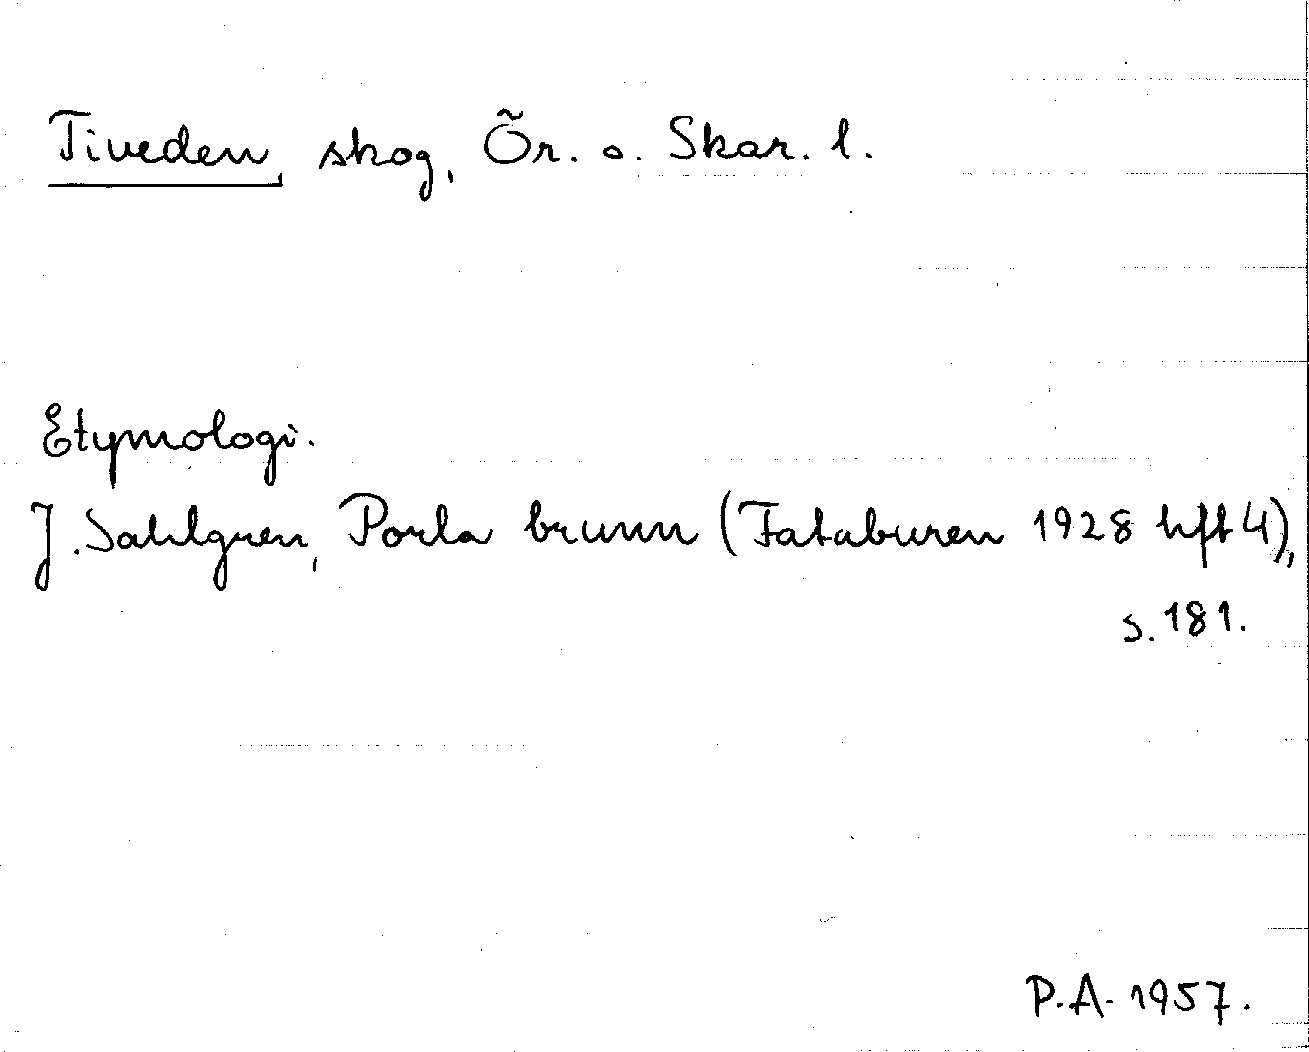 Tiveden, skog, Ör. o. Skar. l.
Etymologi.
J. Sahlgren, Porla brunn (Fataburen 1928 hft 4),
s. 181.
P.A. 1957.